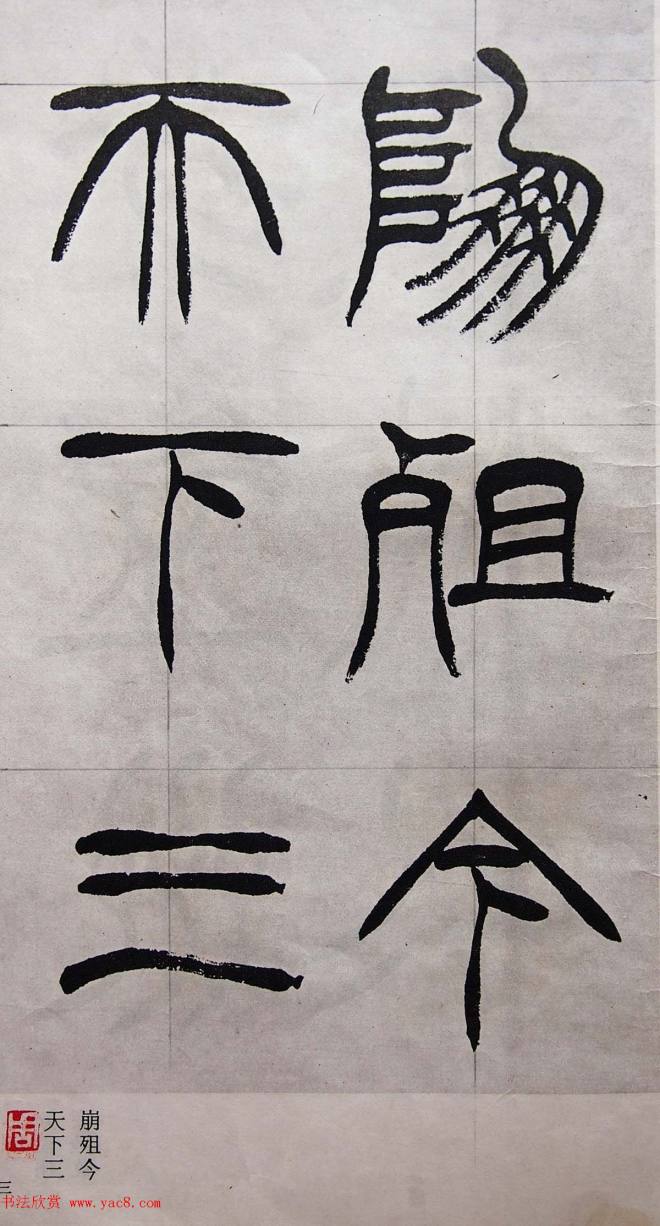 崩殂今
天下三
崩殂今
天下三
三
书法欣赏 www.yac8.com